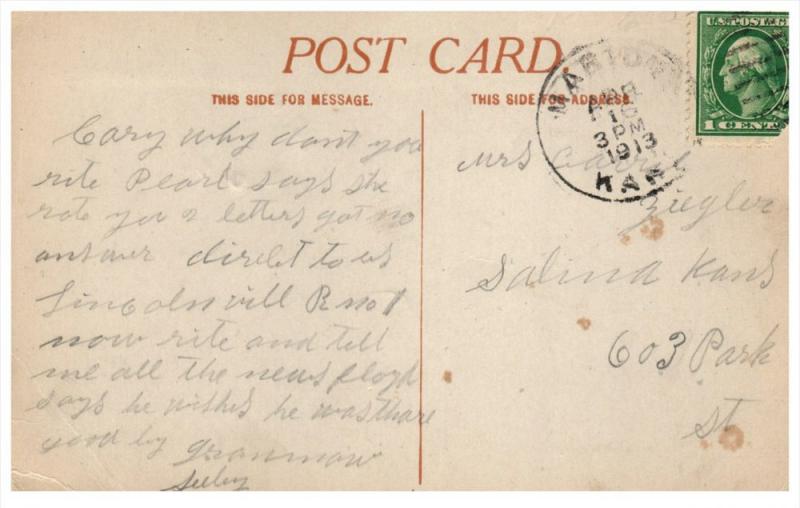 POST CARD.
THIS SIDE FOR MESSAGE.
THIS SIDE FOR ADDRESS.
U.S. POSTAGE
1 CENT
MARION
APR
3 PM
1913
KAN
Cary why dont you
rite Pearl says she
rote you 2 letters got no
answer direct to us
Lincolnvill R no 1
now rite and tell
me all the news floyd
says he wishes he was thare
good by granmaw
Seeley
Mrs Carrie
Ziegler
Salina Kans
603 Park
St